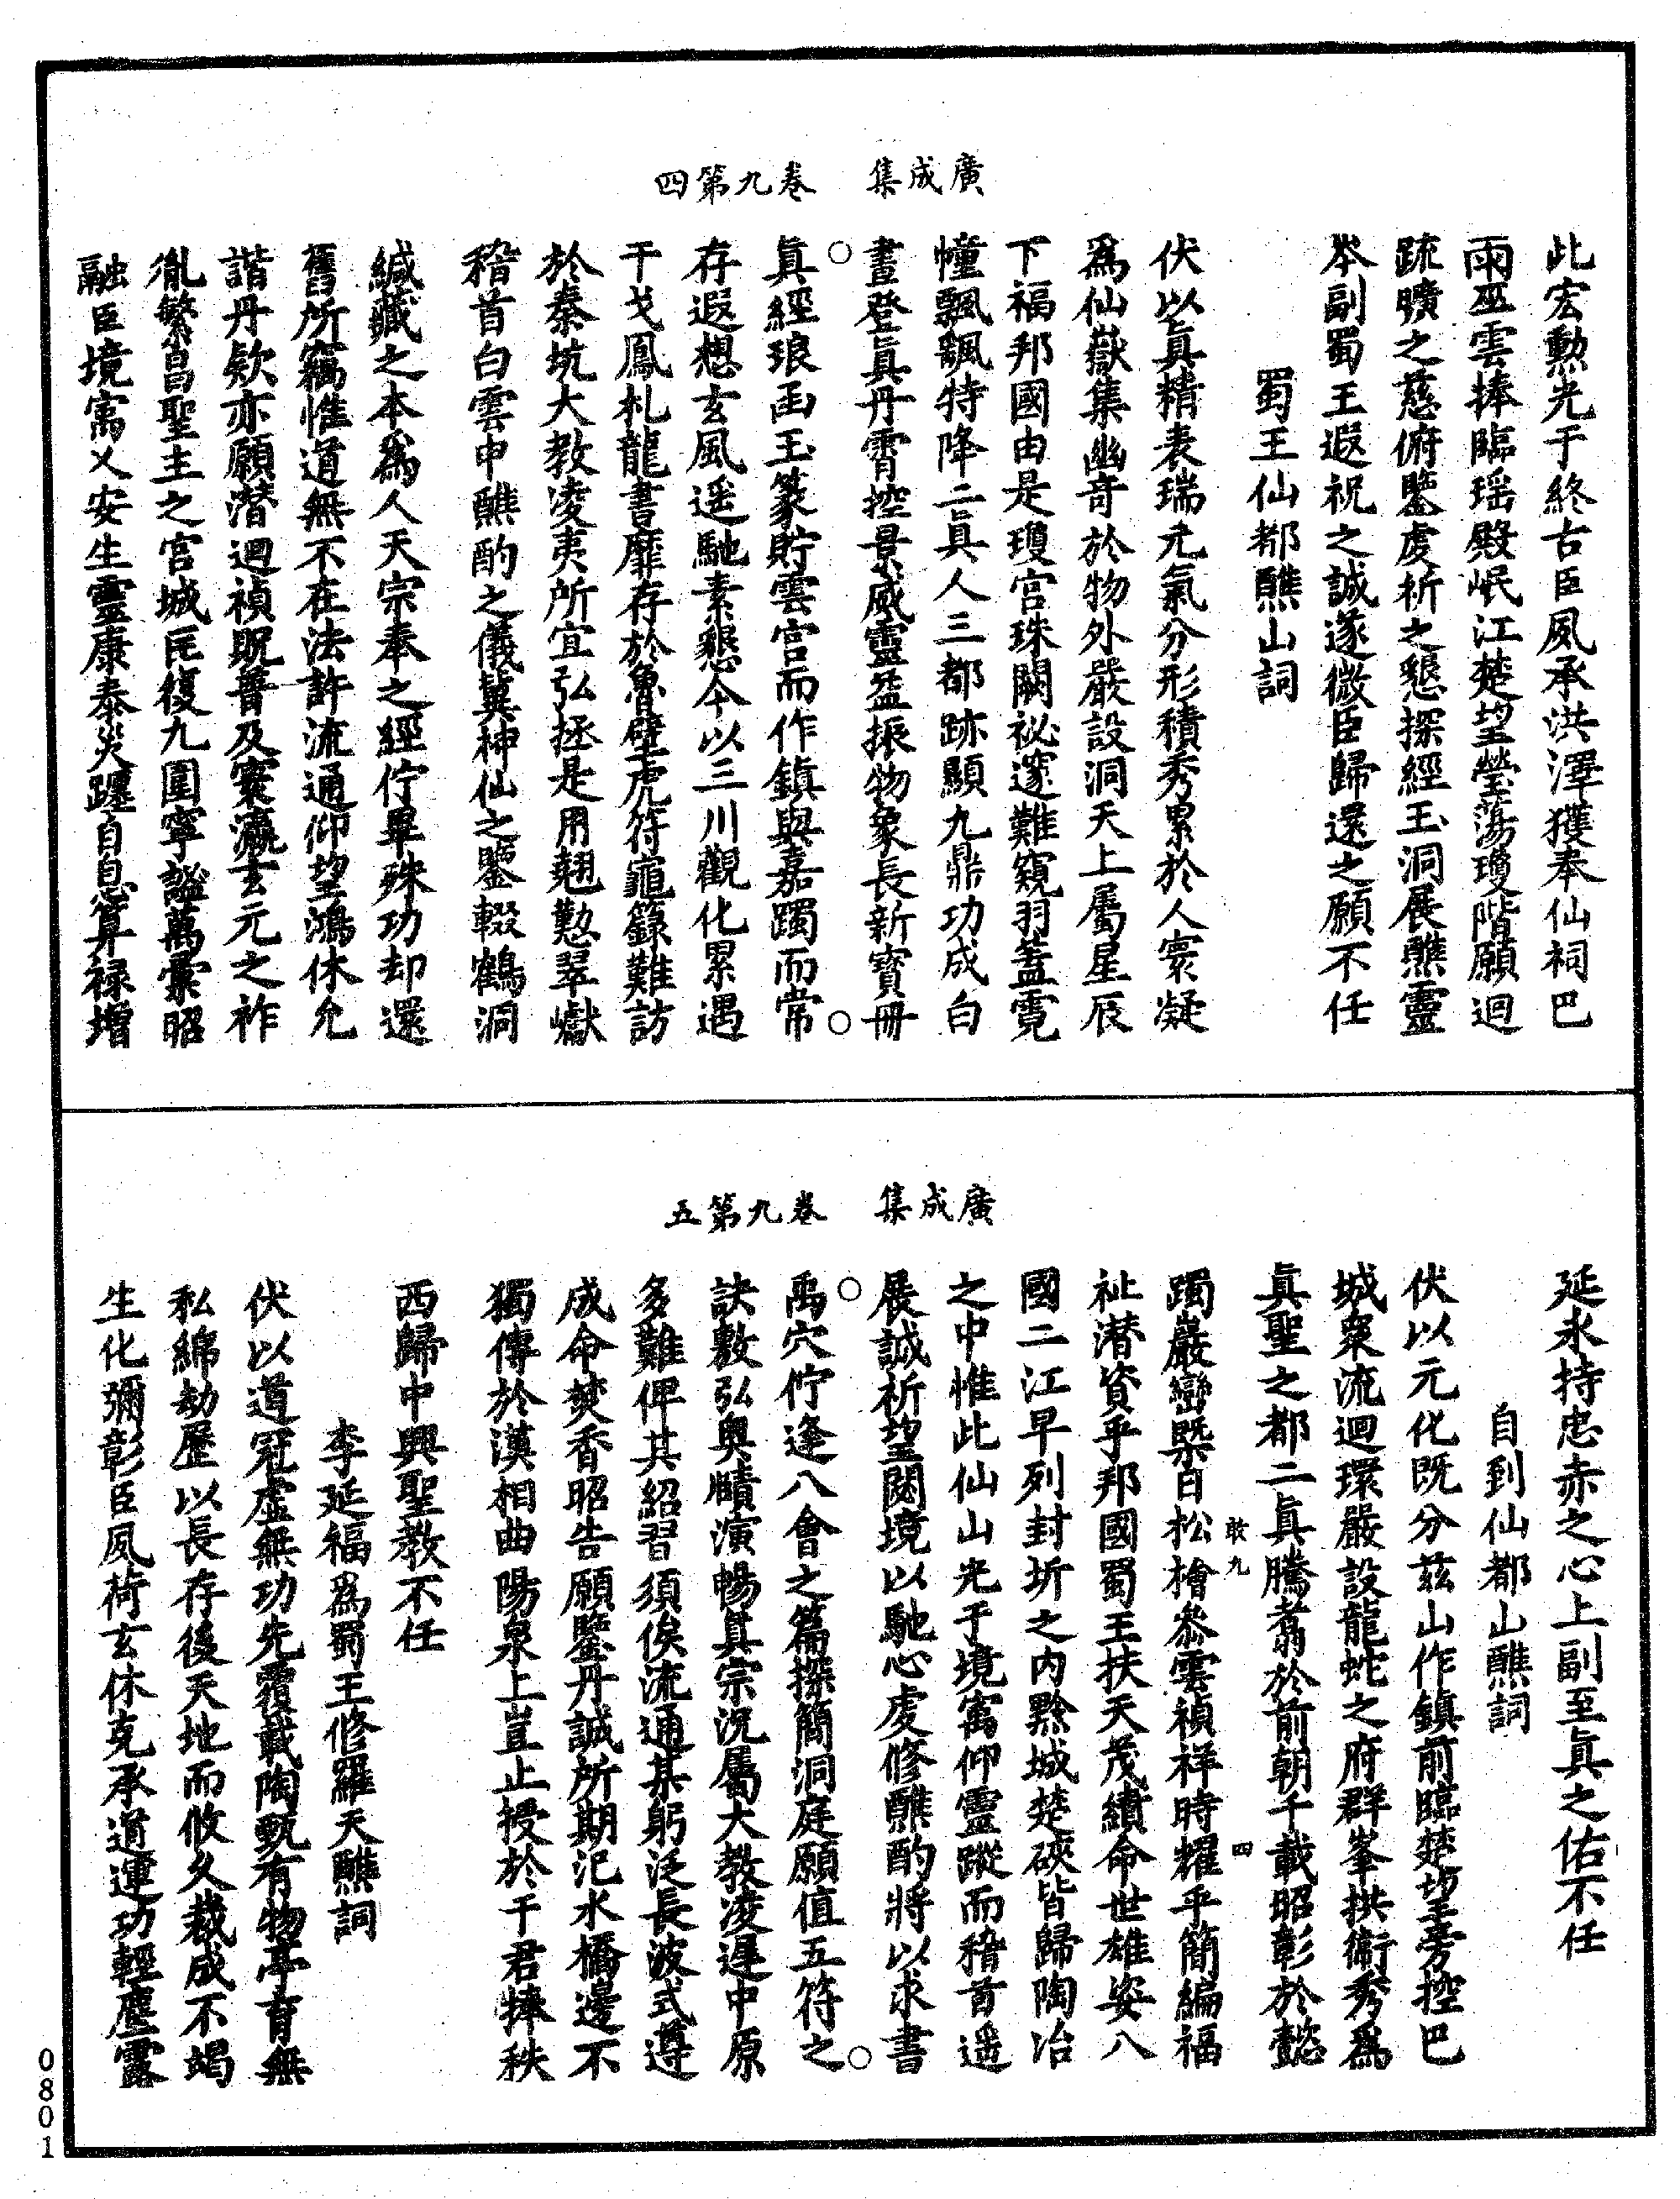 廣成集　卷九第四
此宏勲光于終古臣夙承洪澤獲奉仙祠巴
雨巫雲捧臨瑶殿岷江楚望瑩蕩瓊階願迴
䟽曠之慈俯鑒虔祈之懇探經玉洞展醮靈
岑副蜀王遐祝之誠遂微臣歸還之願不任
蜀王仙都醮山詞
伏以眞精表瑞元氣分形積秀累於人寰凝
爲仙嶽集幽奇於物外嚴設洞天上屬星辰
下福邦國由是瓊宫珠闕祕邃難窺羽蓋霓
幢飄飄特降二眞人三都跡顯九鼎功成白
晝登眞丹霄控景威靈盆振物象長新寳冊
眞經琅函玉篆貯雲宫而作鎮與嘉躅而常
存遐想玄風遥馳素懇今以三川觀化累遇
干戈鳳札龍書靡存於魯壁虎符龜籙難訪
於秦坑大教凌夷所宜弘拯是用翹懃翠巘
稽首白雲申醮酌之儀冀神仙之鑒輟鶴洞
緘藏之本爲人天宗奉之經佇畢殊功却還
舊所竊惟道無不在法許流通仰望鴻休允
諧丹欵亦願潜迴禎貺普及寰瀛玄元之祚
胤繁昌聖主之宫城再復九圍寧謐萬彚昭
融臣境㝢乂安生靈康泰災躔自息算禄增
廣成集　卷九第五
延永持忠赤之心上副至眞之佑不任
自到仙都山醮詞
伏以元化既分兹山作鎮前臨楚望旁控巴
城衆流迴環嚴設龍蛇之府群峯拱衛秀爲
眞聖之都二眞騰翥於前朝千載昭彰於懿
敢九　四
躅巖巒槩日松檜叅雲禎祥時耀乎簡編福
祉潜資乎邦國蜀王扶天茂績命世雄姿八
國二江早列封圻之内黔城楚硤皆歸陶冶
之中惟此仙山光于境㝢仰靈蹤而稽首遥
展誠祈望閟境以馳心虔修醮酌將以求書
禹穴佇逢八會之篇探簡洞庭願值五符之
訣敷弘奥賾演暢眞宗況屬大教凌遲中原
多難俾其紹習須俟流通某躬泛長波式遵
成命焚香昭告願鑒丹誠所期汜水橋邊不
獨傳於漢相曲陽泉上豈止授於干君捧秩
西歸中興聖教不任
李延福爲蜀王修羅天醮詞
伏以道冠虛無功先覆載陶甄有物亭育無
私綿劫歴以長存後天地而攸久裁成不竭
生化彌彰臣夙荷玄休克承道運功輕塵露
0801